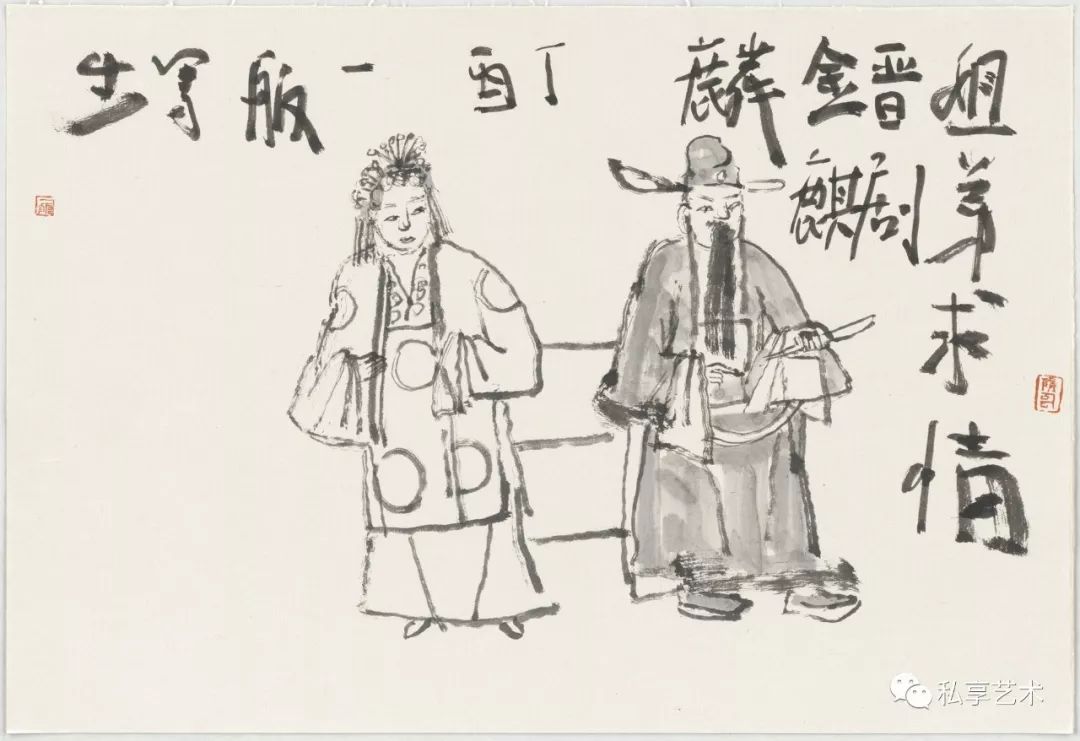 姐弟求情
晋剧
金麒
麟
丁
酉
一
般
写
生
私享艺术